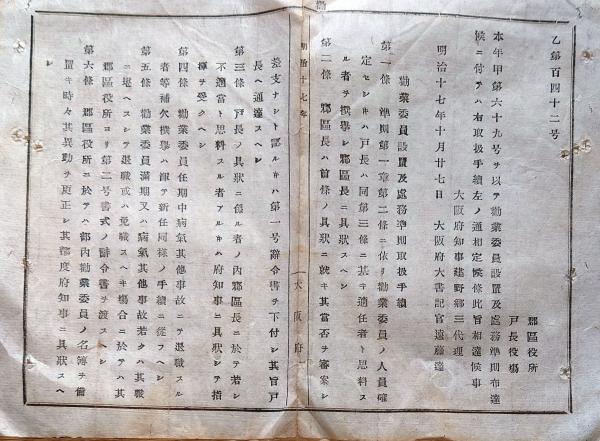 乙第百四十二号
郡區役所
戸長役場
本年甲第六十九号ヲ以テ勧業委員設置及處務凖則布達
候ニ付テハ右取扱手續左ノ通相定候條此旨相達候事
大阪府知事建野郷三代理
明治十七年十月廿七日 大阪府大書記官遠藤達
勧業委員設置及處務凖則取扱手續
第一條 凖則第一章第二條ニ依リ勧業委員ノ人員確
定セシトキハ戸長ハ同第三條ニ基キ適任者ト思料ス
ル者ヲ撰擧シ郡區長ニ具状スヘシ
第二條 郡區長ハ前條ノ具状ニ就キ其當否ヲ審案シ
明治十七年
大阪府
差支ナシト認ルトキハ第一号辞令書ヲ下付シ其旨戸
長ヘ通達スヘシ
第三條 戸長ノ具状ニ係ル者ノ内郡區長ニ於テ若シ
不適當ト思料スル者アルトキハ府知事ニ具状シテ指
揮ヲ受クヘシ
第四條 勧業委員任期中病氣其他事故ニテ退職スル
者等補欠撰擧ハ渾テ新任同様ノ手續ニ從フヘシ
第五條 勧業委員満期又ハ病氣其他事故若クハ其職
ニ堪ヘスシテ退職或ハ免職スヘキ場合ニ於テハ其
郡區役所ヨリ第二号書式ノ辞令書ヲ渡スヘシ
第六條 郡區役所ニ於テハ部内勧業委員ノ名簿ヲ備
置キ時々其異動ヲ更正シ其都度府知事ニ具状スヘ
シ